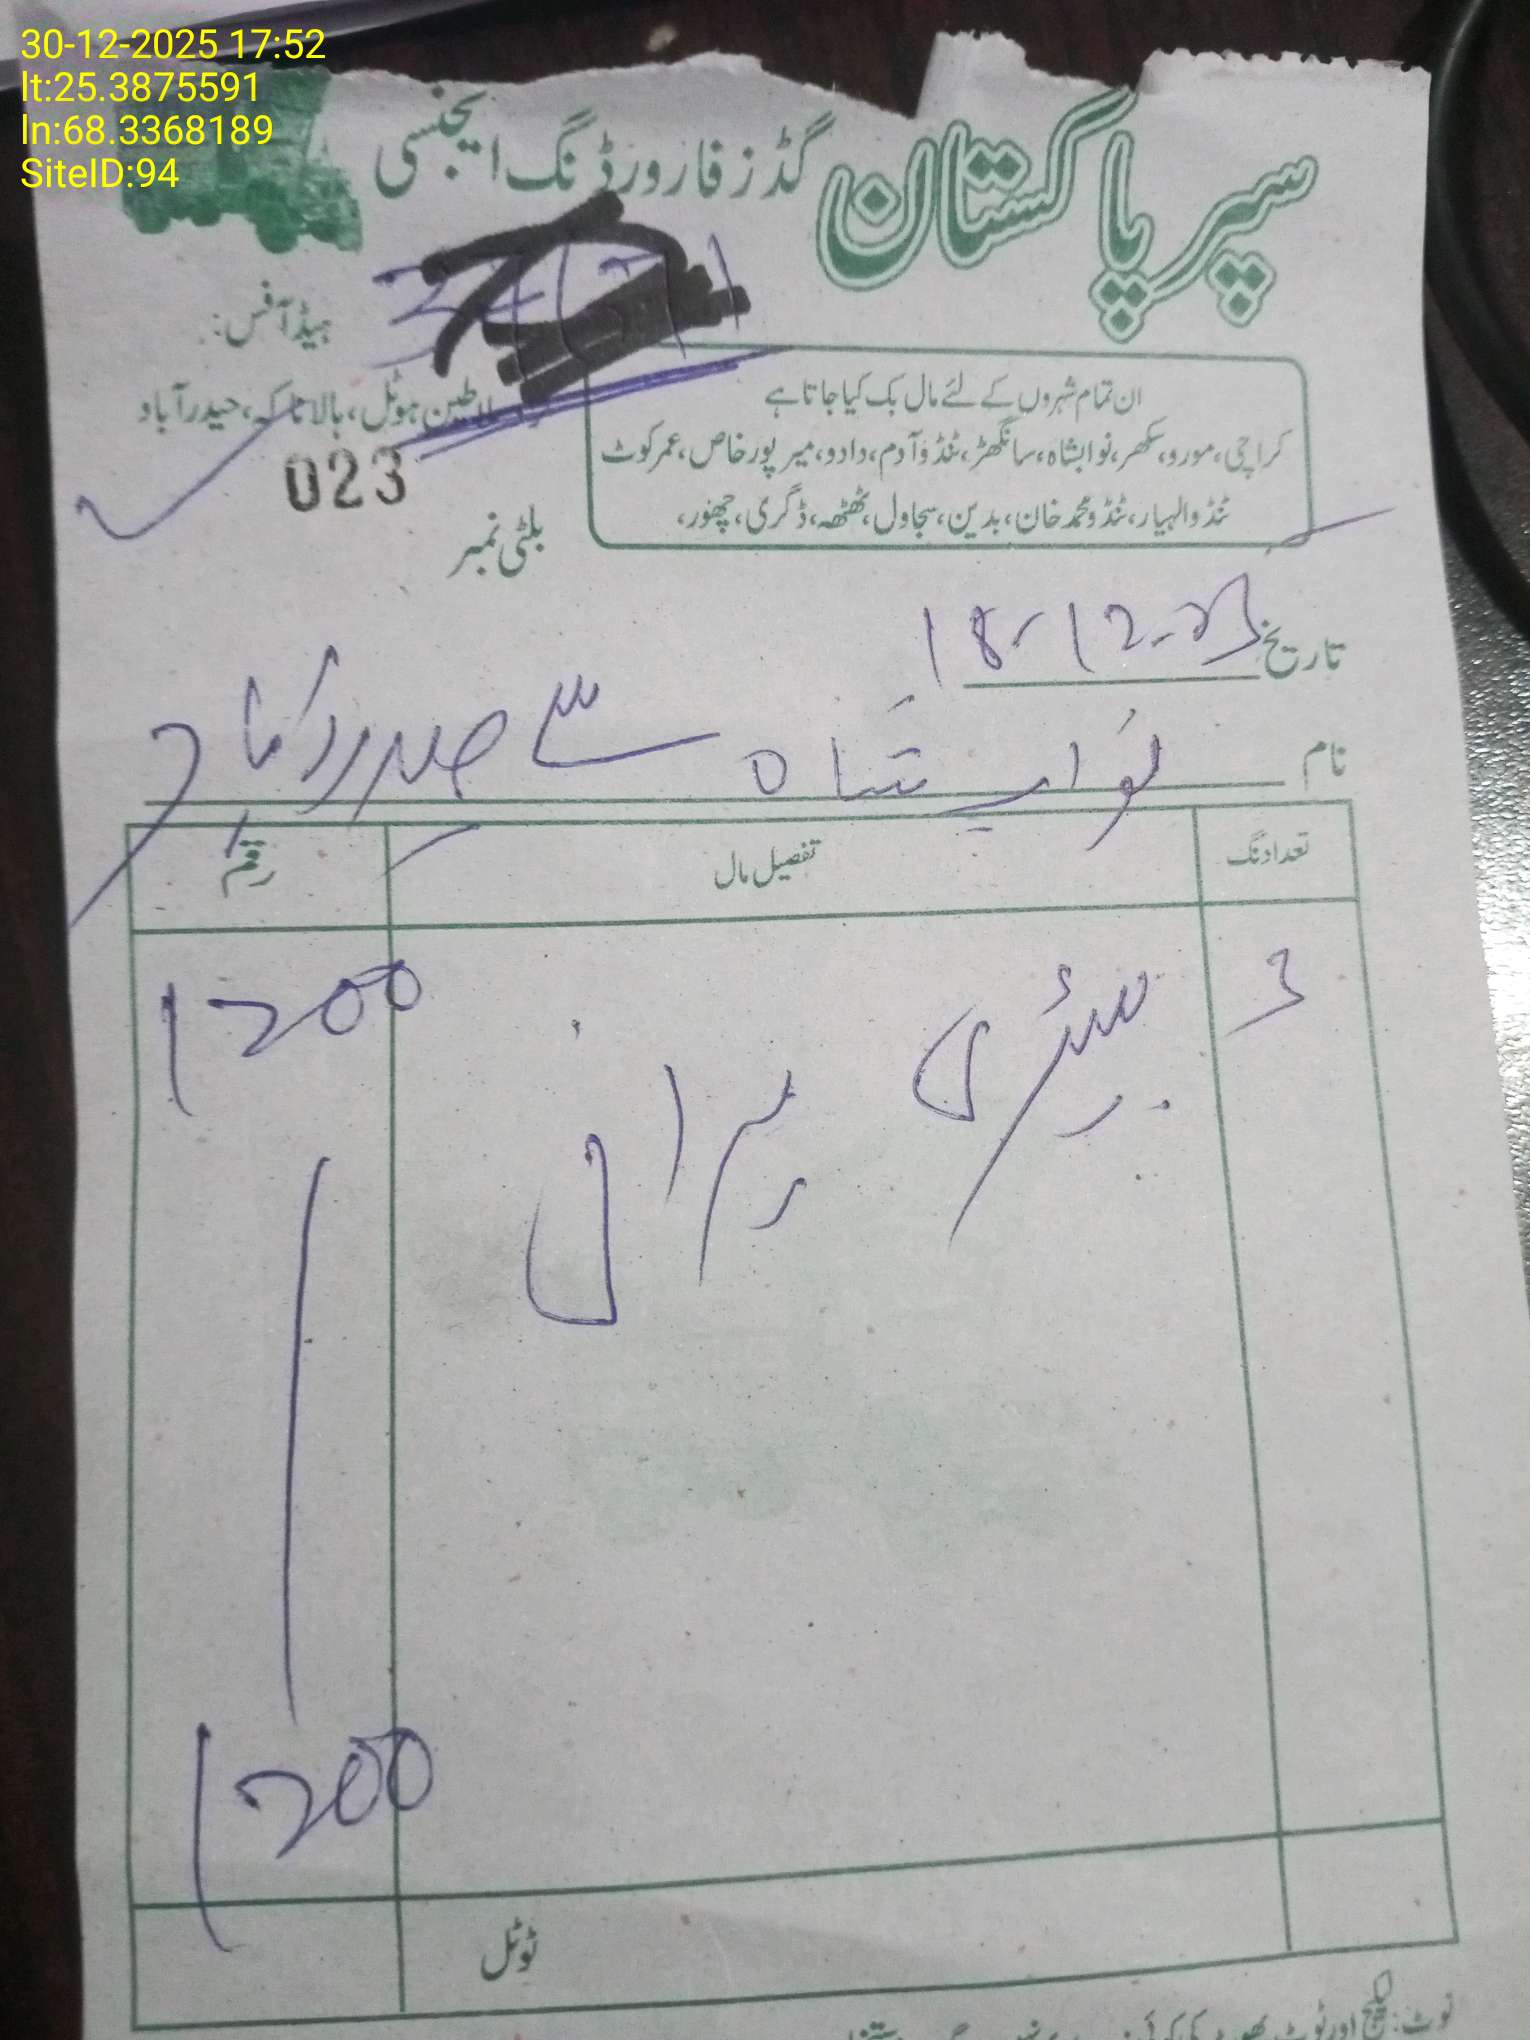 30-12-2025 17:52
lt:25.3875591
ln:68.3368189
SiteID:94
سپر پاکستان گڈز فارورڈنگ ایجنسی
ہیڈ آفس:
ہوٹل، بالا ناکہ، حیدرآباد
ان تمام شہروں کے لئے مال بک کیا جاتا ہے
کراچی، مورو، سکھر، نوابشاہ، سانگھڑ، ٹنڈوآدم، دادو، میرپورخاص، عمرکوٹ
ٹنڈوالہیار، ٹنڈومحمد خان، بدین، سجاول، ٹھٹھہ، ڈگری، چھور،
023
بلٹی نمبر
تاریخ 18-12-23
نام نواب شاہ سے حیدرآباد
تعداد نگ تفصیل مال رقم
3 بیٹری پرانی 1200
1200
ٹوٹل
نوٹ: